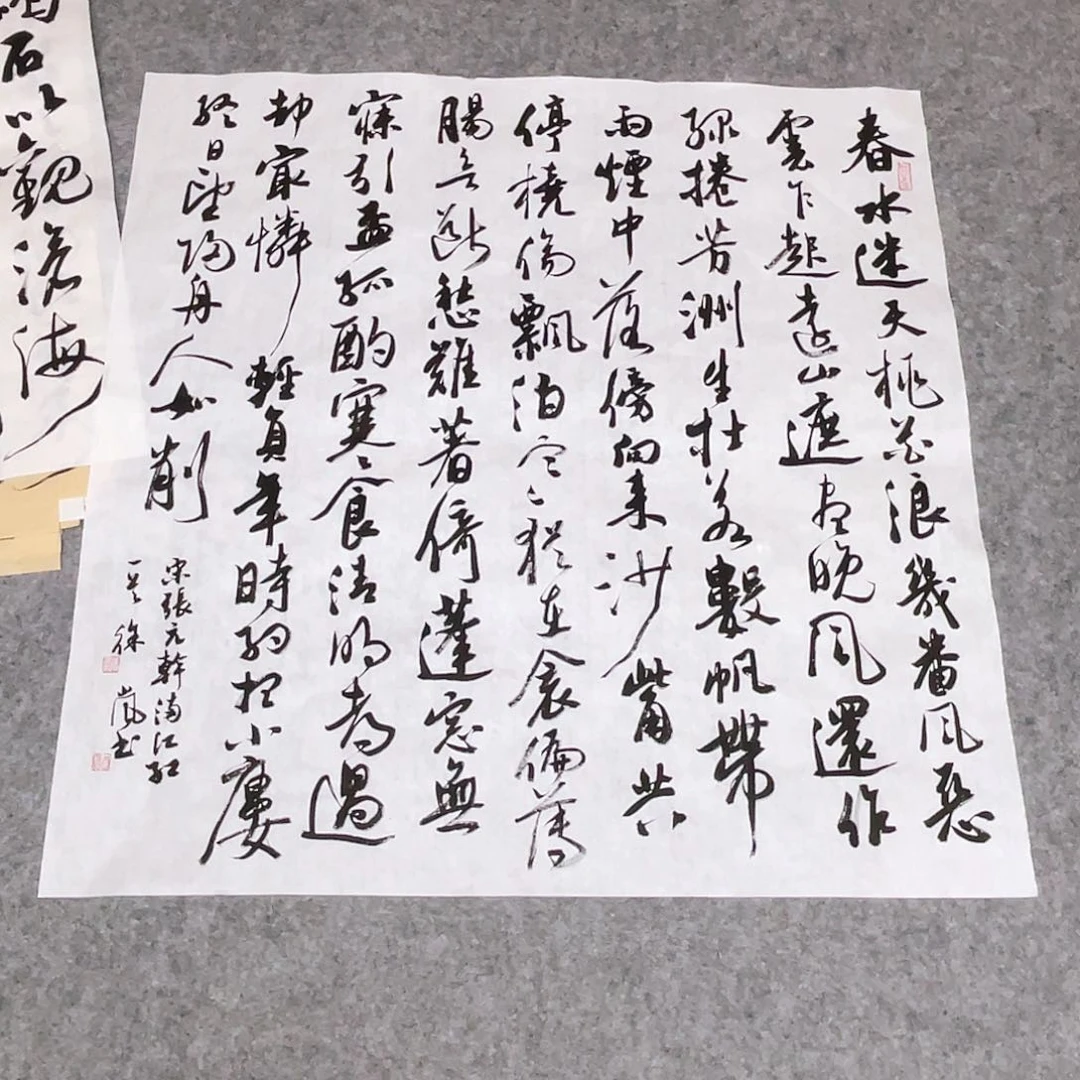 春水迷天桃花浪幾番风惡
雲乍起遠山遮盡晚风還作
綠捲芳洲生杜若數帆帶
雨煙中落傍向来沙觜共
停橈傷飄泊寒犹在衾偏薄
腸欲断愁難著倚蓬窓無
寐引盃孤酌寒食清明都過
却冣憐輕負年時約想小廔
終日望归舟人如削
宋張元幹满江红
徐嵐书
石以觀滄海